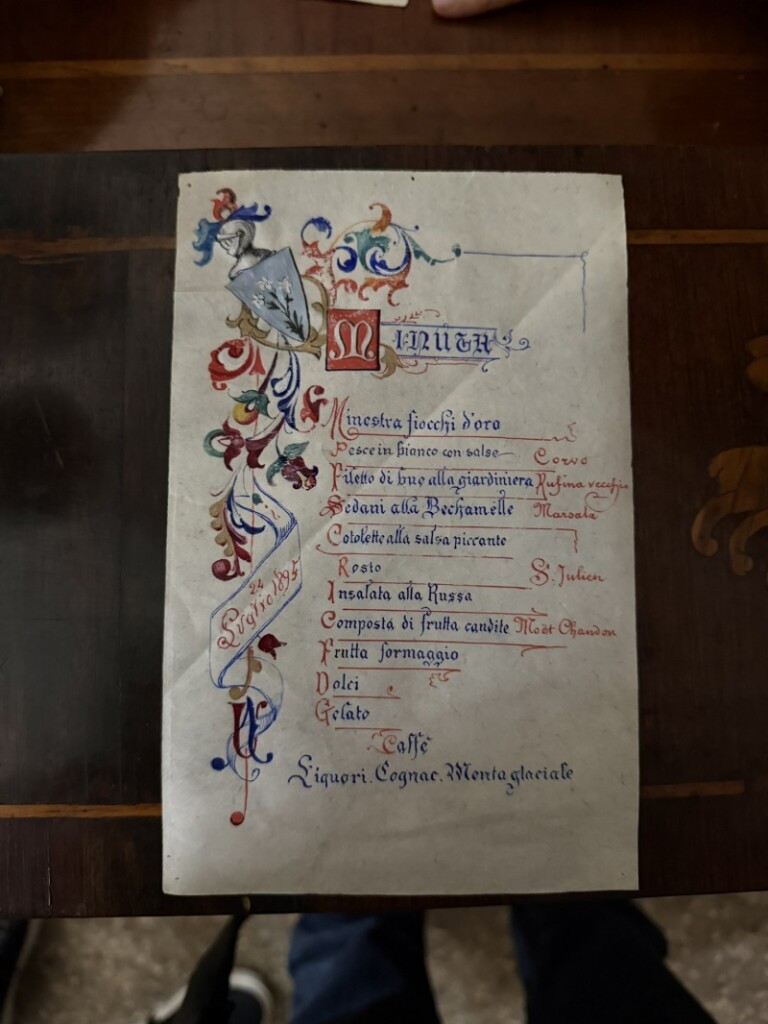 Minuta
Minestra fiocchi d'oro
Pesce in bianco con salse Corvo
Filetto di bue alla giardiniera Rufina vecchio
Sedani alla Bechamelle Marsala
Cotolette alla salsa piccante
Rosto S. Julien
Insalata alla Russa
Composta di frutta candite Moët Chandon
Frutta formaggio
Dolci
Gelato
Caffè
Liquori. Cognac. Menta glaciale
24
Luglio 1895